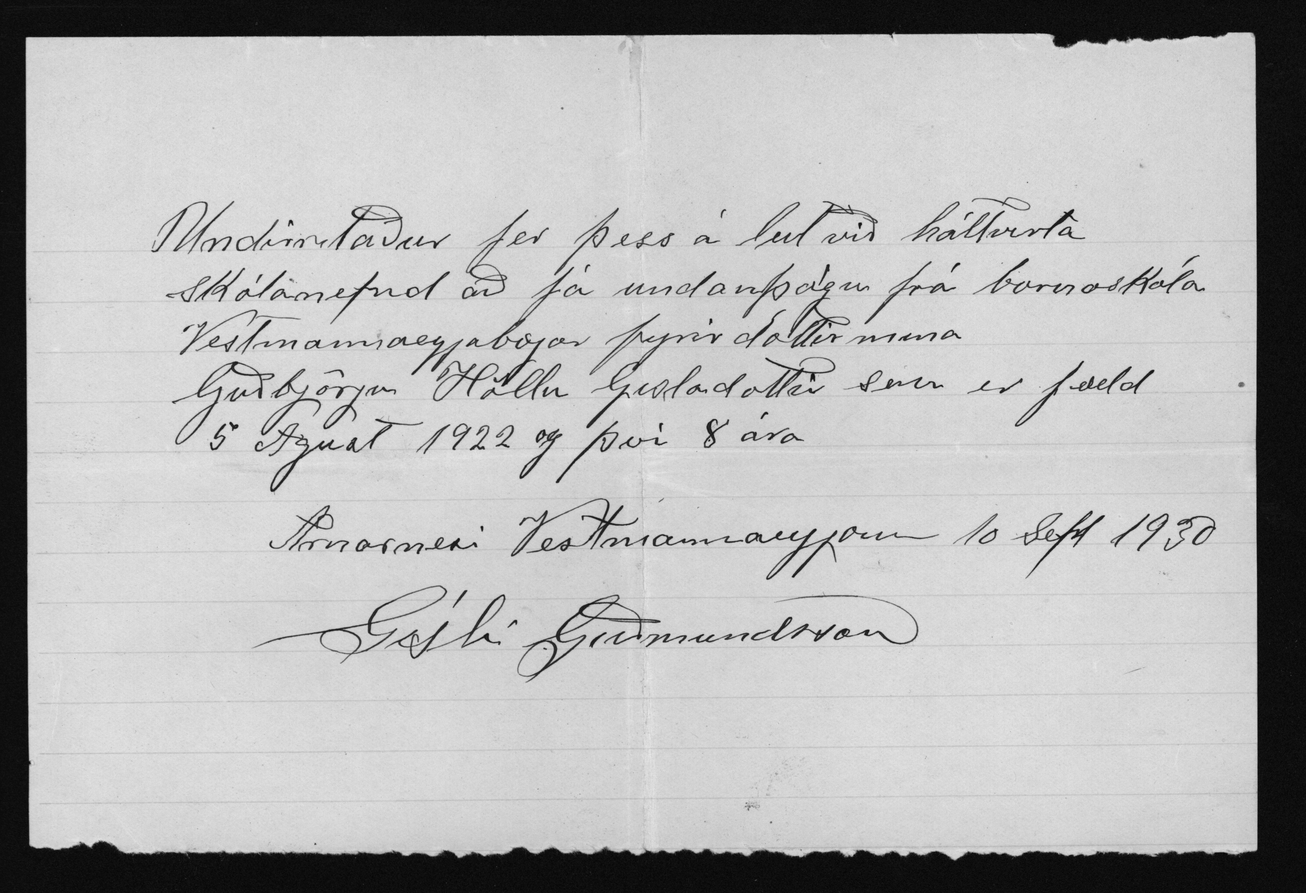 Undirritaður fer þess á leit við háttvirta
skólanefnd að fá undanþágu frá barnaskóla
Vestmannaeyjabæjar fyrir dóttir mina
Guðbjörgu Höllu Gisladottir sem er fædd
5 Agust 1922 og þvi 8 ára
Arnarnesi Vestmannaeyjom 10 Sept 1930
Gísli Guðmundsson